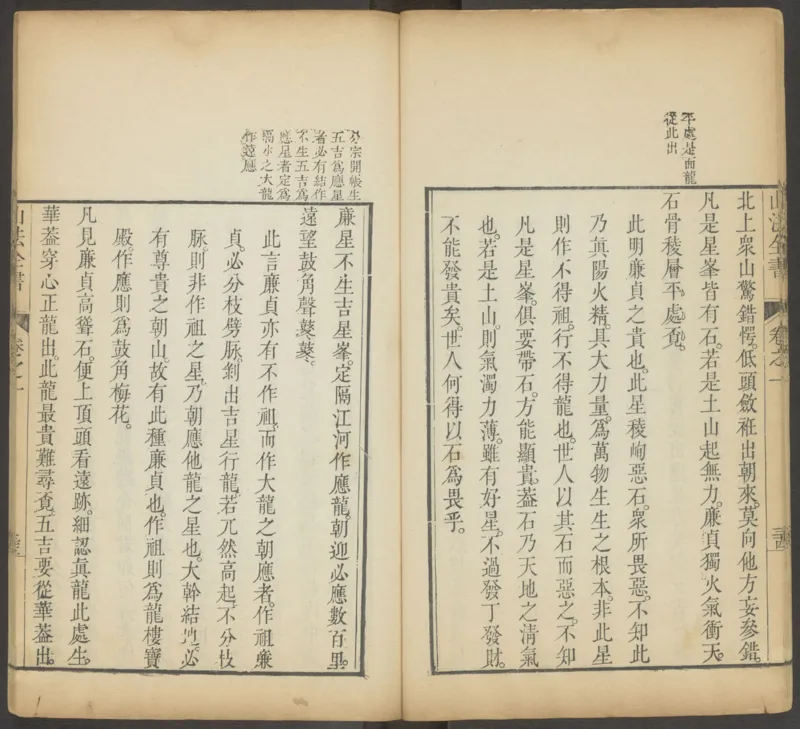 平處是而龍
從此出
山法全書
卷之一
北上衆山驚錯愕。低頭斂袵出朝來。莫向他方妄參錯。
凡是星峯皆有石。若是土山起無力。廉貞獨火氣衝天。
石骨稜層平處覔。
此明廉貞之貴也。此星稜峋惡石。衆所畏惡。不知此
乃眞陽火精。具大力量。爲萬物生生之根本。非此星
則作不得祖。行不得龍也。世人以其石而惡之。不知
凡是星峯。俱要帶石。方能顯貴。葢石乃天地之淸氣
也。若是土山。則氣濁力薄。雖有好星。不過發丁發財。
不能發貴矣。世人何得以石爲畏乎。
分宗開帳生
五吉爲應星
者必有結作
不生五吉爲
應星者定爲
隔水之大龍
作遠應
廉星不生吉星峯。定隔江河作應龍。朝迎必應數百里。
遠望鼓角聲鼕鼕。
此言廉貞亦有不作祖。而作大龍之朝應者。作祖廉
貞。必分枝劈脉。剝出吉星行龍。若兀然高起。不分枝
脉。則非作祖之星。乃朝應他龍之星也。大幹結地。必
有尊貴之朝山。故有此種廉貞也。作祖則爲龍樓寶
殿。作應則爲鼓角梅花。
凡見廉貞高聳石。便上頂頭看遠跡。細認眞龍此處生。
華葢穿心正龍出。此龍最貴難尋覔。五吉要從華葢出。
山法全書
卷之一